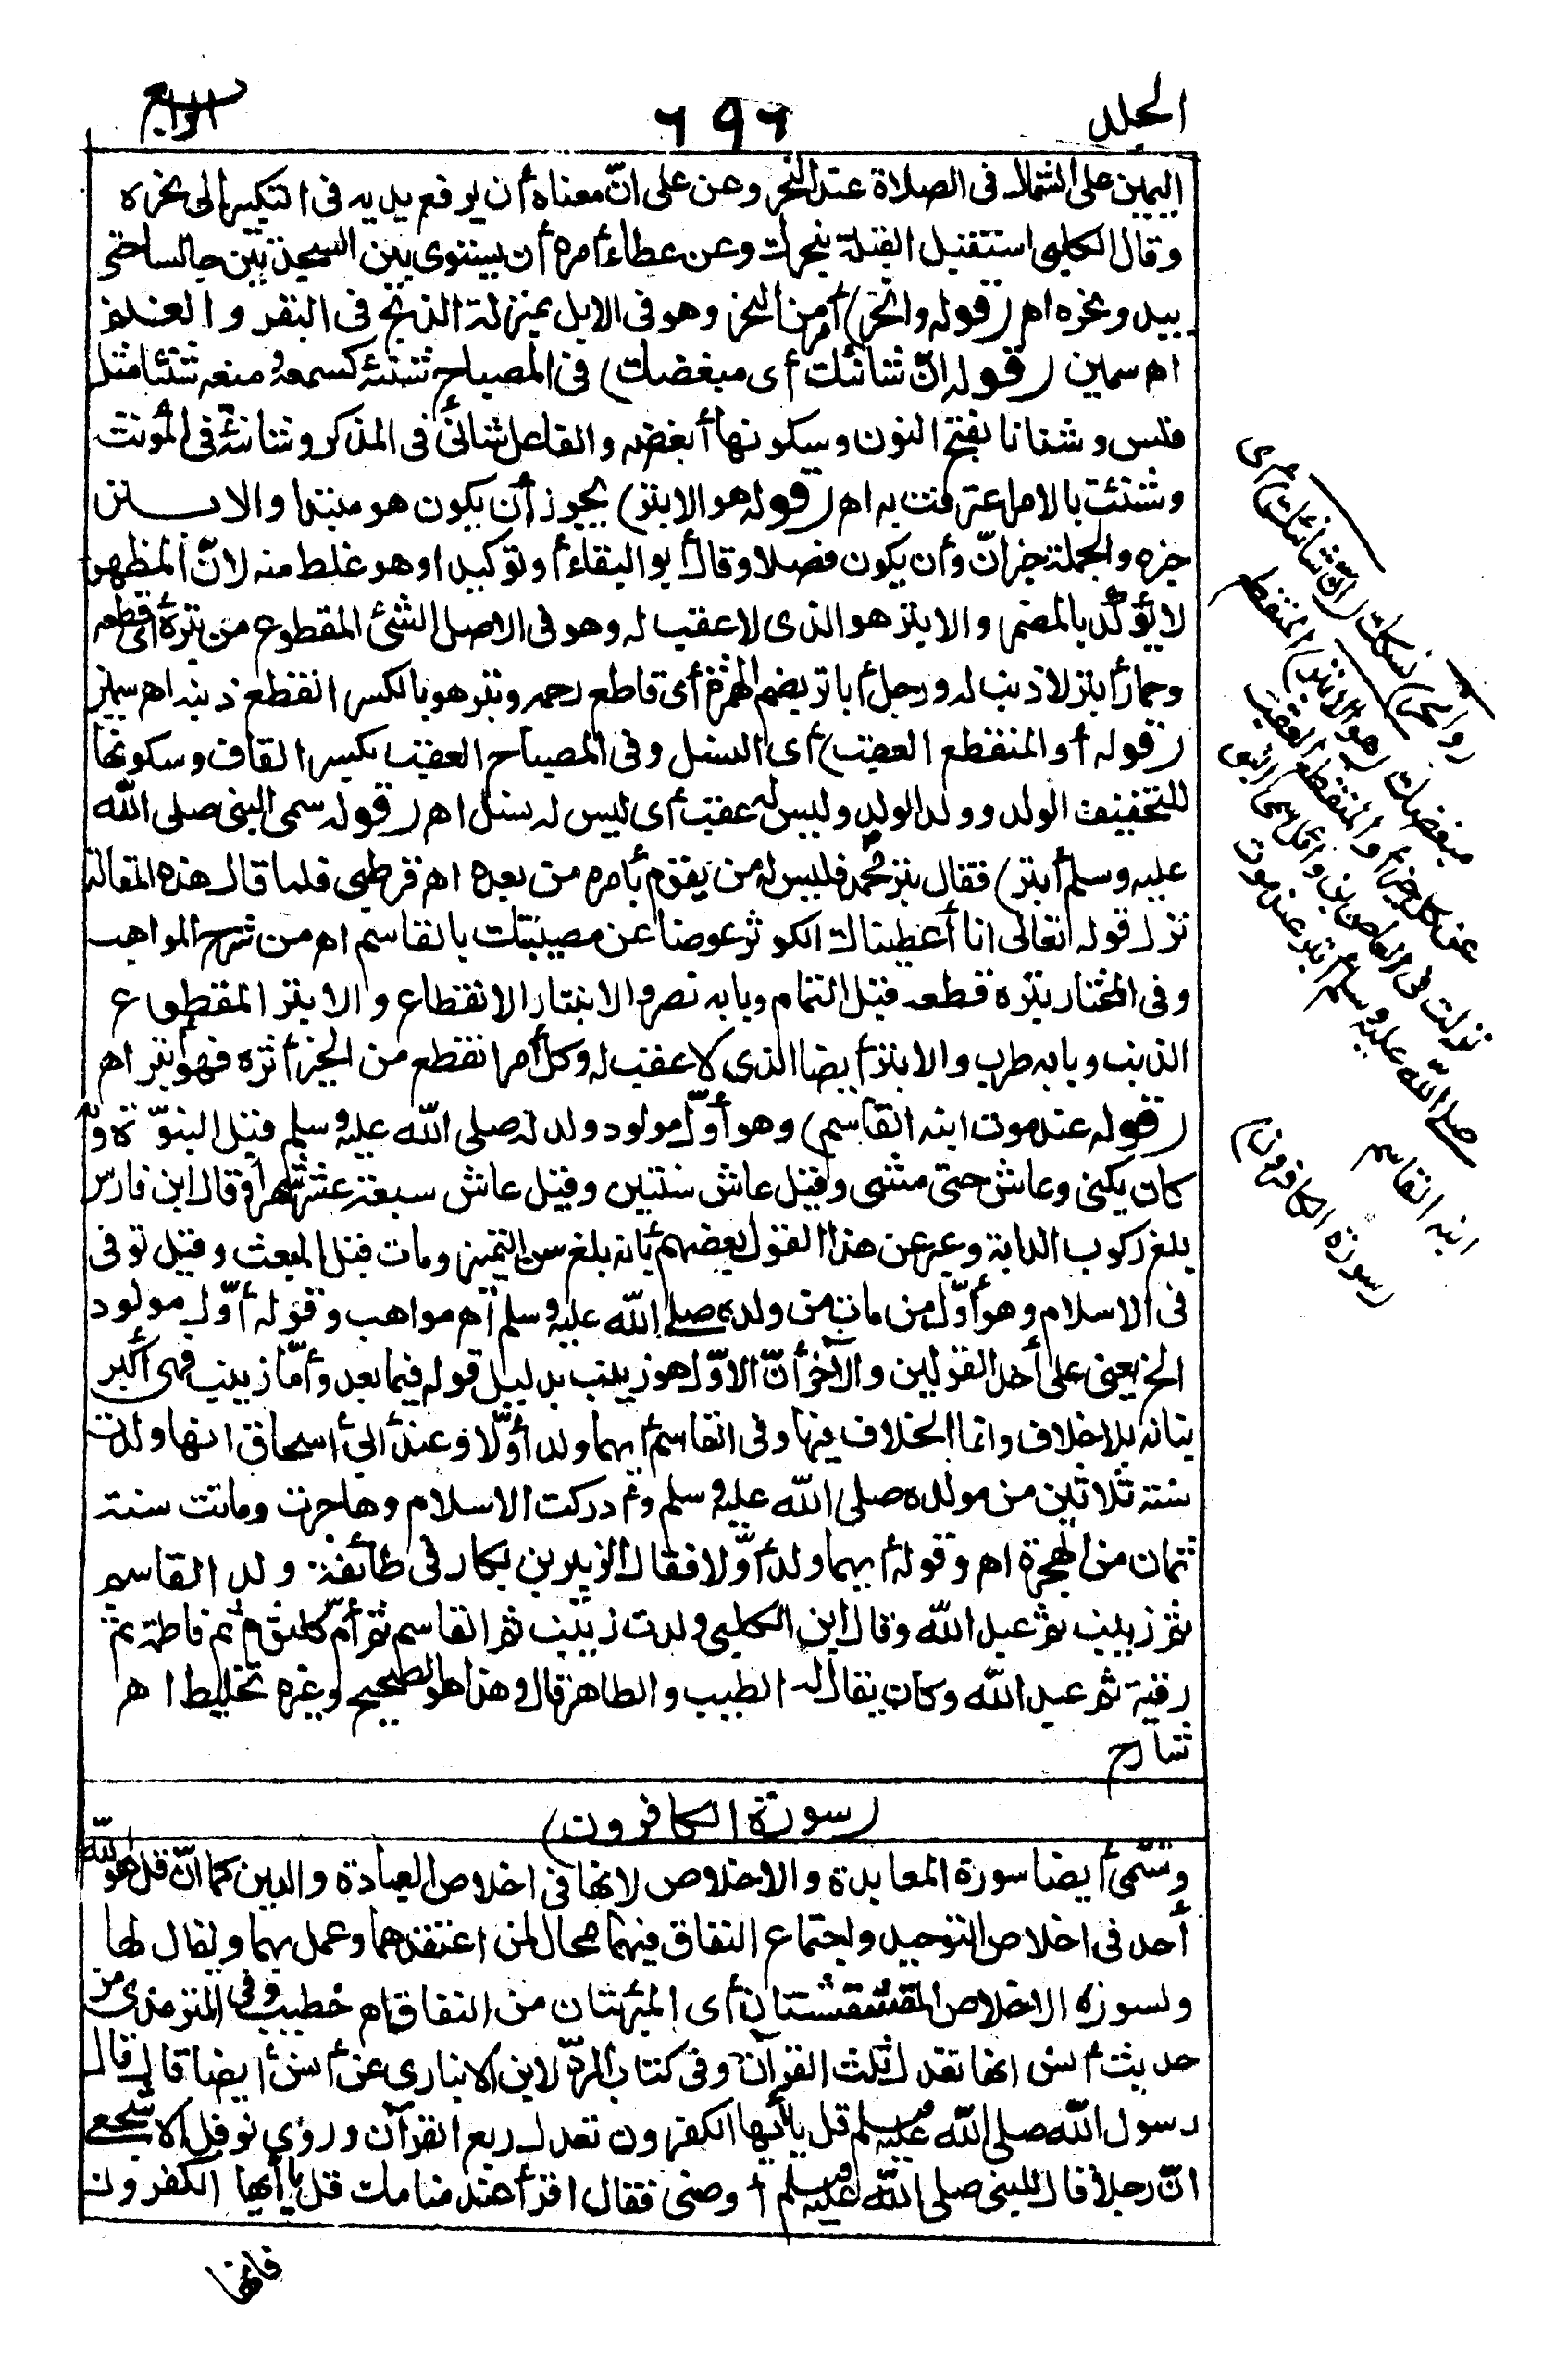 الجلد
٦٩٦
الرابع
اليمين على الشمال فى الصلاة عند النحر وعن على انّ معناه أن يرفع يديه فى التكبير الى نحره
وقال الكلبى استقبل القبلة بنحرك وعن عطاء أمره أن يستوى بين السجدتين جالسا حتى
يبدو نحره اه (قوله وانحر) أمر من النحر وهو فى الابل بمنزلة الذبح فى البقر والغنم
اه سمين (قوله انّ شانئك أى مبغضك) فى المصباح شنئه كسمعه ومنعه شنئا مثل
فلس وشنانا بفتح النون وسكونها أبغضه والفاعل شانئ فى المذكر وشانئة فى المؤنث
وشنئت بالامر اعترفت به اه (قوله هو الابتر) يجوز أن يكون هو مبتدا والابتر
خبره والجملة خبر انّ وأن يكون فصلا وقال أبو البقاء أو توكيد اوهو غلط منه لانّ المظهر
لا يؤكد بالمضمر والابتر هو الذى لا عقب له وهو فى الاصل الشئ المقطوع من بتره أى قطعه
وحمار أبتر لا ذنب له ورجل أباتر بضم الهمزة أى قاطع رحمه وبتر هو بالكسر انقطع ذنبه اه سمين
(قوله أو المنقطع العقب) أى النسل وفى المصباح العقب بكسر القاف وسكونها
للتخفيف الولد وولد الولد وليس له عقب أى ليس له نسل اه (قوله سمى النبى صلى الله
عليه وسلم أبتر) فقال بتر محمد فليس له من يقوم بأمره من بعده اه قرطبى فلما قال هذه المقالة
نزل قوله تعالى انا أعطيناك الكوثر عوضا عن مصيبتك بالقاسم اه من شرح المواهب
وفى المختار بتره قطعه قبل التمام وبابه نصر والانبتار الانقطاع والابتر المقطوع
الذنب وبابه طرب والابتر أيضا الذى لا عقب له وكل أمر انقطع من الخير أثره فهو أبتر اه
(قوله عند موت ابنه القاسم) وهو أوّل مولود ولد له صلى الله عليه وسلم قبل النبوّة وبه
كان يكنى وعاش حتى مشى وقيل عاش سنتين وقيل عاش سبعة عشر شهرا وقال ابن فارس
بلغ ركوب الدابة وعبر عن هذا القول بعضهم بأنه بلغ سن التمييز ومات قبل المبعث وقيل توفى
فى الاسلام وهو أوّل من مات من ولده صلى الله عليه وسلم اه مواهب وقوله أوّل مولود
الخ يعنى على أحد القولين والآخر أنّ الاوّل هو زينب بدليل قوله فيما بعد وأمّا زينب فهى أكبر
بناته بلا خلاف وانما الخلاف فيها وفى القاسم أيهما ولد أوّلا وعند ابن اسحاق انها ولدت
سنة ثلاثين من مولده صلى الله عليه وسلم وأدركت الاسلام وهاجرت وماتت سنة
ثمان من الهجرة اه وقوله أيهما ولد أوّلا فقال الزبير بن بكار فى طائفة ولد القاسم
ثم زينب ثم عبد الله وقال ابن الكلبى ولدت زينب ثم القاسم ثم أمّ كلثوم ثم فاطمة ثم
رقية ثم عبد الله وكان يقال له الطيب والطاهر قال وهذا هو الصحيح وغيره تخليط اه
شارح
(سورة الكافرون)
وتسمى أيضا سورة المعابدة والاخلاص لانها فى اخلاص العبادة والدين كما انّ قل هو الله
أحد فى اخلاص التوحيد واجتماع النفاق فيهما محال لمن اعتقدهما وعمل بهما ويقال لها
ولسورة الاخلاص المقشقشتان أى المبرئتان من النفاق اه خطيب وفى الترمذى من
حديث أنس انها تعدل ثلث القرآن وفى كتاب الردّ لابن الانبارى عن أنس أيضا قال قال
رسول الله صلى الله عليه وسلم قل يا أيها الكفرون تعدل ربع القرآن وروى نوفل الاشجعى
انّ رجلا قال للنبى صلى الله عليه وسلم أوصنى فقال اقرأ عند منامك قل يا أيها الكفرون
فانها
(وانحر) نسكك (انّ شانئك) أى
مبغضك (هو الابتر) المنقطع
عن كل خير أو المنقطع العقب
نزلت فى العاص بن وائل سمى النبى
صلى الله عليه وسلم أبتر عند موت
ابنه القاسم
(سورة الكافرون)